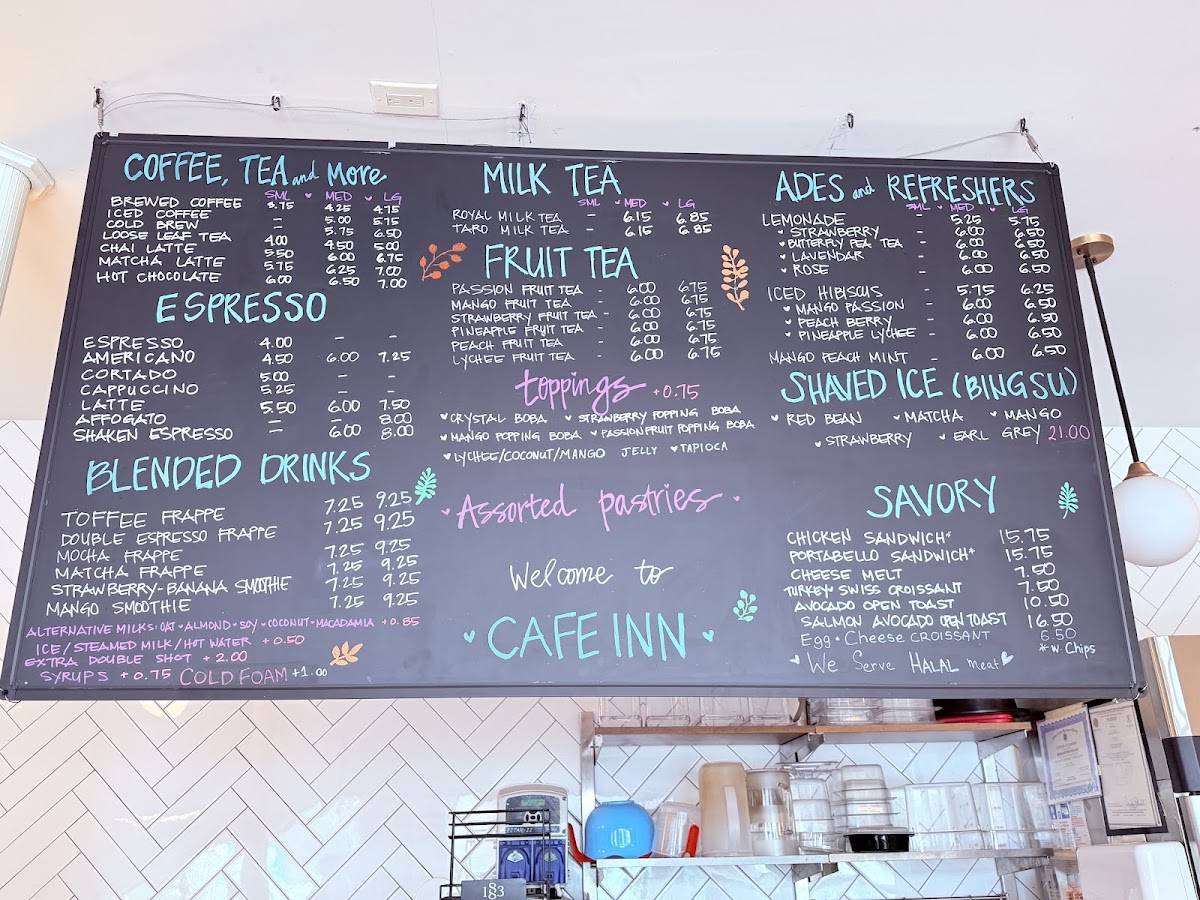 COFFEE, TEA and MORE
SML ♥ MED ♥ LG
BREWED COFFEE 3.75 4.25 4.75
ICED COFFEE – 5.00 5.75
COLD BREW – 5.75 6.50
LOOSE LEAF TEA 4.00 4.50 5.00
CHAI LATTE 5.50 6.00 6.75
MATCHA LATTE 5.75 6.25 7.00
HOT CHOCOLATE 6.00 6.50 7.00
ESPRESSO
ESPRESSO 4.00 – –
AMERICANO 4.50 6.00 7.25
CORTADO 5.00 – –
CAPPUCCINO 5.25 – –
LATTE 5.50 6.00 7.50
AFFOGATO – – 8.00
SHAKEN ESPRESSO – 6.00 8.00
BLENDED DRINKS
TOFFEE FRAPPE 7.25 9.25
DOUBLE ESPRESSO FRAPPE 7.25 9.25
MOCHA FRAPPE 7.25 9.25
MATCHA FRAPPE 7.25 9.25
STRAWBERRY-BANANA SMOOTHIE 7.25 9.25
MANGO SMOOTHIE 7.25 9.25
ALTERNATIVE MILKS: OAT • ALMOND • SOY • COCONUT • MACADAMIA + 0.85
ICE/STEAMED MILK/HOT WATER + 0.50
EXTRA DOUBLE SHOT + 2.00
SYRUPS + 0.75 COLD FOAM +1.00
MILK TEA
SML ♥ MED ♥ LG
ROYAL MILK TEA – 6.15 6.85
TARO MILK TEA – 6.15 6.85
FRUIT TEA
PASSION FRUIT TEA – 6.00 6.75
MANGO FRUIT TEA – 6.00 6.75
STRAWBERRY FRUIT TEA – 6.00 6.75
PINEAPPLE FRUIT TEA – 6.00 6.75
PEACH FRUIT TEA – 6.00 6.75
LYCHEE FRUIT TEA – 6.00 6.75
toppings +0.75
♥ CRYSTAL BOBA ♥ STRAWBERRY POPPING BOBA
♥ MANGO POPPING BOBA ♥ PASSIONFRUIT POPPING BOBA
♥ LYCHEE/COCONUT/MANGO JELLY ♥ TAPIOCA
Assorted pastries
Welcome to
♥ CAFE INN ♥
ADES and REFRESHERS
SML ♥ MED ♥ LG
LEMONADE – 5.25 5.75
♥ STRAWBERRY – 6.00 6.50
♥ BUTTERFLY PEA TEA – 6.00 6.50
♥ LAVENDAR – 6.00 6.50
♥ ROSE – 6.00 6.50
ICED HIBISCUS – 5.75 6.25
♥ MANGO PASSION – 6.00 6.50
♥ PEACH BERRY – 6.00 6.50
♥ PINEAPPLE LYCHEE – 6.00 6.50
MANGO PEACH MINT – 6.00 6.50
SHAVED ICE (BINGSU)
♥ RED BEAN ♥ MATCHA ♥ MANGO
♥ STRAWBERRY ♥ EARL GREY 21.00
SAVORY
CHICKEN SANDWICH* 15.75
PORTABELLO SANDWICH* 15.75
CHEESE MELT 7.50
TURKEY SWISS CROISSANT 7.50
AVOCADO OPEN TOAST 10.50
SALMON AVOCADO OPEN TOAST 16.50
Egg • Cheese CROISSANT 6.50
* w Chips
♥ We Serve HALAL meat ♥
183